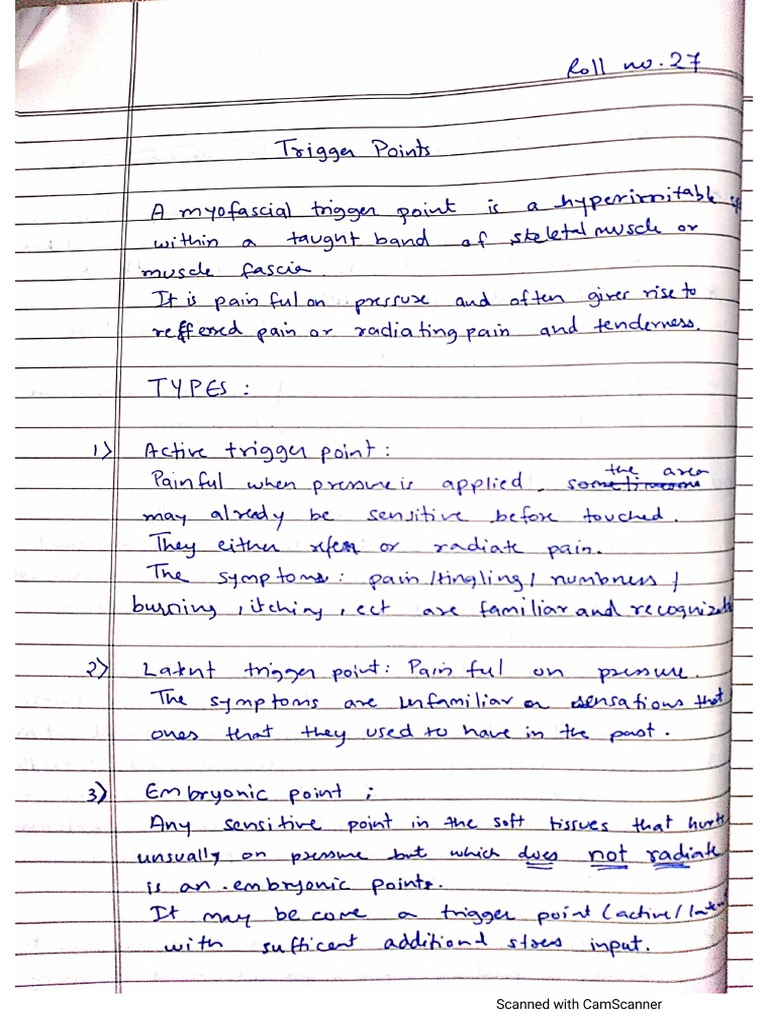 Roll no. 27
Trigger Points
A myofascial trigger point is a hyperirritable
within a taught band of skeletal muscle or
muscle fascia.
It is painful on pressure and often gives rise to
reffered pain or radiating pain and tenderness.
TYPES :
1) Active trigger point :
Painful when pressure is applied. the area
may already be sensitive before touched.
They either refer or radiate pain.
The symptoms : pain / tingling / numbness /
burning , itching , ect are familiar and recognizab
2) Latent trigger point : Painful on pressure.
The symptoms are unfamiliar or sensations that
ones that they used to have in the past .
3) Embryonic point ;
Any sensitive point in the soft tissues that hurts
unsually on pressure but which does not radiate
is an embryonic points.
It may become a trigger point (active / late
with sufficent additional stress input.
Scanned with CamScanner